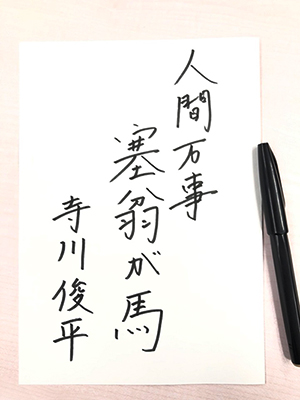 人間万事
塞翁が馬
寺川俊平